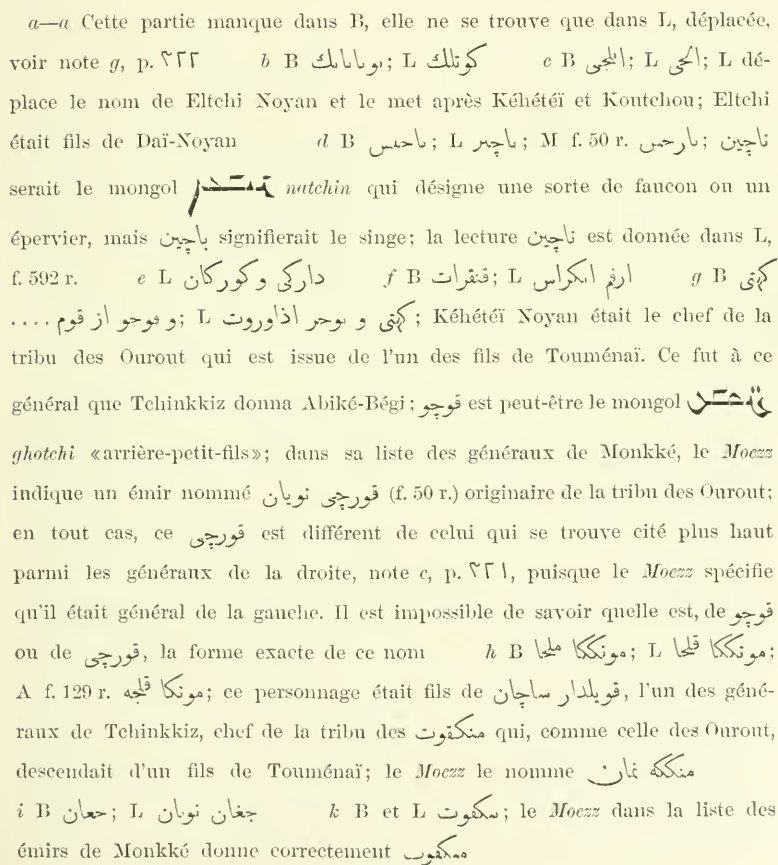 a—a Cette partie manque dans B, elle ne se trouve que dans L, déplacée,
voir note g, p. ٣٢٢ b B ; L كوتلك c B ; L ; L dé-
place le nom de Eltchi Noyan et le met après Kéhétéï et Koutchou; Eltchi
était fils de Daï-Noyan d B ; L ; M f. 50 r. ; ناچين
serait le mongol natchin qui désigne une sorte de faucon ou un
épervier, mais باچين signifierait le singe; la lecture ناچين est donnée dans L,
f. 592 r. e L داركى و كوركان f B قنقرات; L g B كهتى
و قوحو از قوم ....; L كهتى و بوحر اذاوروت; Kéhétéï Noyan était le chef de la
tribu des Ourout qui est issue de l'un des fils de Touménaï. Ce fut à ce
général que Tchinkkiz donna Abiké-Bégi; قوچو est peut-être le mongol
ghotchi «arrière-petit-fils»; dans sa liste des généraux de Monkké, le Moezz
indique un émir nommé قورچى نويان (f. 50 r.) originaire de la tribu des Ourout;
en tout cas, ce قورچى est différent de celui qui se trouve cité plus haut
parmi les généraux de la droite, note c, p. ٣٢١, puisque le Moezz spécifie
qu'il était général de la gauche. Il est impossible de savoir quelle est, de قوچو
ou de قورچى, la forme exacte de ce nom h B مونككا ملحا; L مونككا قلحا;
A f. 129 r. مونكا قلجه; ce personnage était fils de قويلدار ساچان, l'un des géné-
raux de Tchinkkiz, chef de la tribu des منكقوت qui, comme celle des Ourout,
descendait d'un fils de Touménaï; le Moezz le nomme منككه
i B ; L جغان نويان k B et L ; le Moezz dans la liste des
émirs de Monkké donne correctement